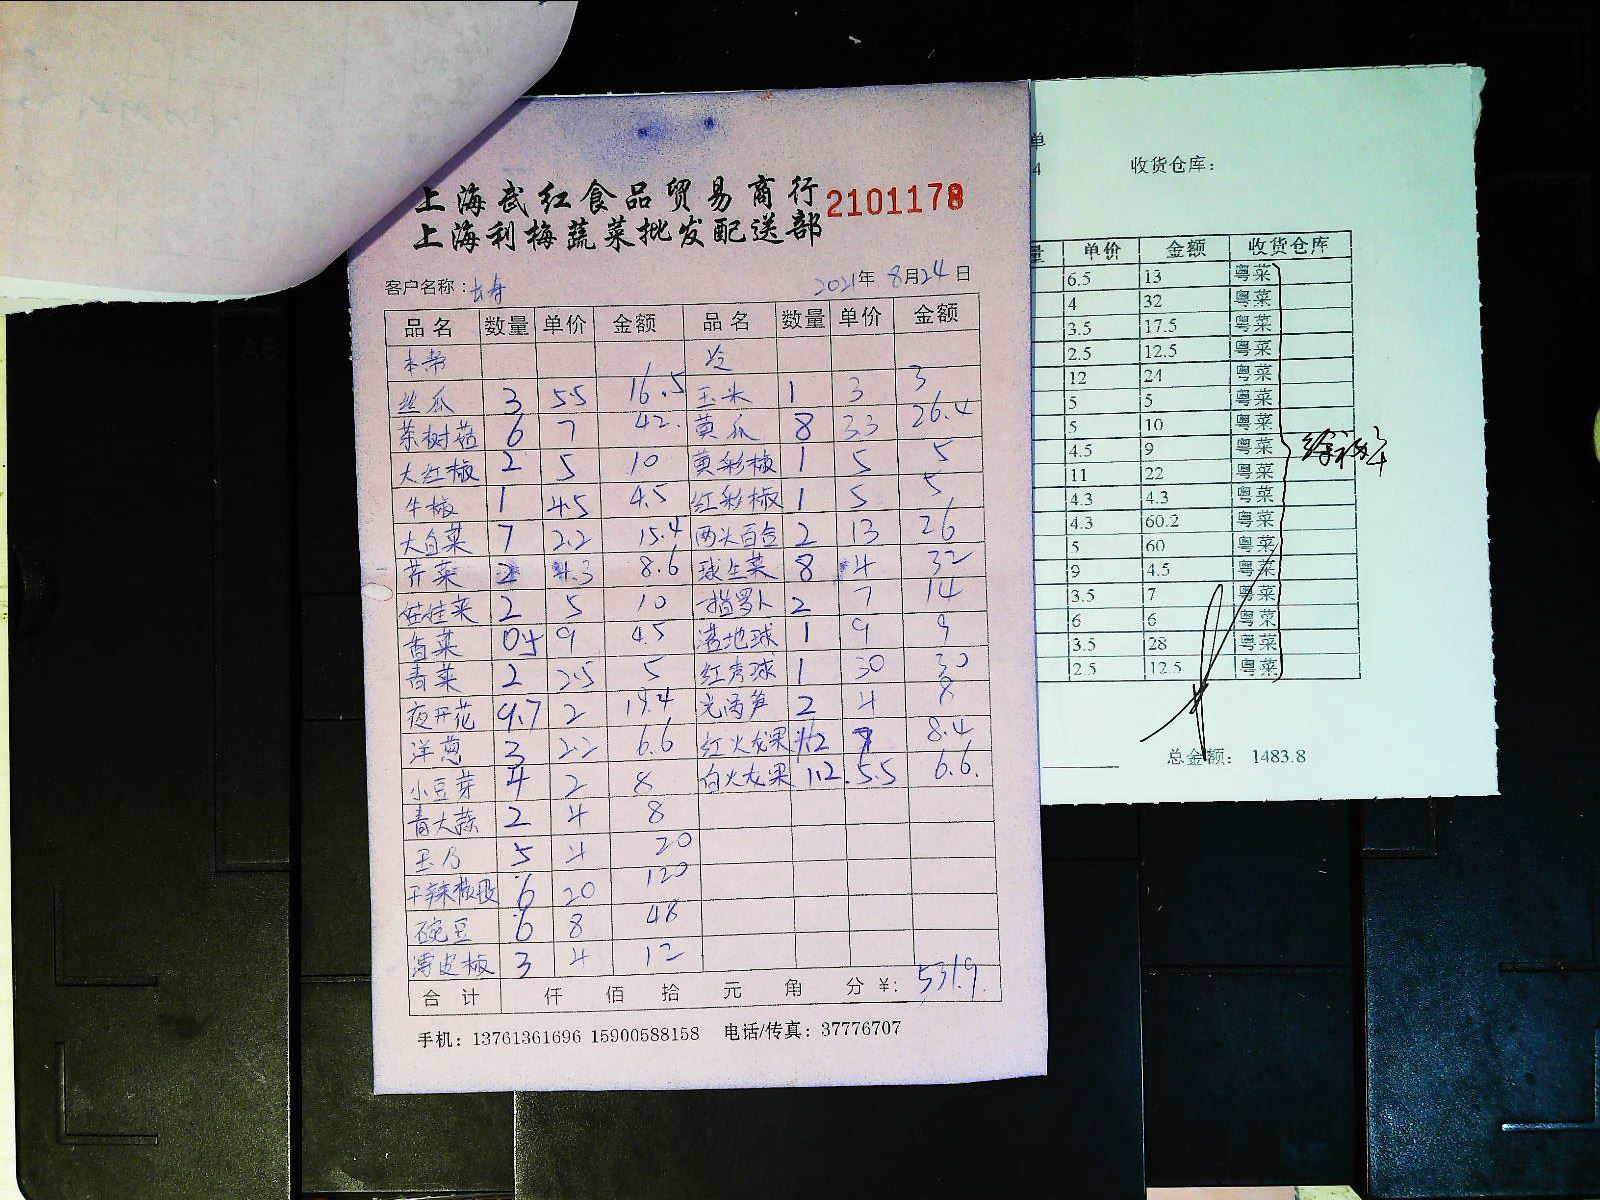 上海武红食品贸易商行
上海利梅蔬菜批发配送部
2101178
客户名称：长寿 2021年8月24日
品名 数量 单价 金额 品名 数量 单价 金额
本帮 冷
丝瓜 3 5.5 16.5 玉米 1 3 3
茶树菇 6 7 42. 黄瓜 8 3.3 26.4
大红椒 2 5 10 黄彩椒 1 5 5
牛椒 1 4.5 4.5 红彩椒 1 5 5
大白菜 7 2.2 15.4 两头百合 2 13 26
芹菜 2 4.3 8.6 球生菜 8 4 32
娃娃菜 2 5 10 指罗卜 2 7 14
香菜 0.5 9 4.5 满地球 1 9 9
青菜 2 2.5 5 红秀球 1 30 30
夜开花 9.7 2 19.4 光莴笋 2 4 8
洋葱 3 2.2 6.6 红火龙果 1.2 7 8.4
小豆芽 4 2 8 白火龙果 1.2 5.5 6.6.
青大蒜 2 4 8
玉乃 5 4 20
干辣椒段 6 20 120
碗豆 6 8 48
薄皮椒 3 4 12
合计 仟 佰 拾 元 角 分 ¥: 531.9
手机：13761361696 15900588158 电话/传真：37776707
单
4 收货仓库：
量 单价 金额 收货仓库
6.5 13 粤菜
4 32 粤菜
3.5 17.5 粤菜
2.5 12.5 粤菜
12 24 粤菜
5 5 粤菜
5 10 粤菜
4.5 9 粤菜
11 22 粤菜
4.3 4.3 粤菜
4.3 60.2 粤菜
5 60 粤菜
9 4.5 粤菜
3.5 7 粤菜
6 6 粤菜
3.5 28 粤菜
2.5 12.5 粤菜
总金额： 1483.8